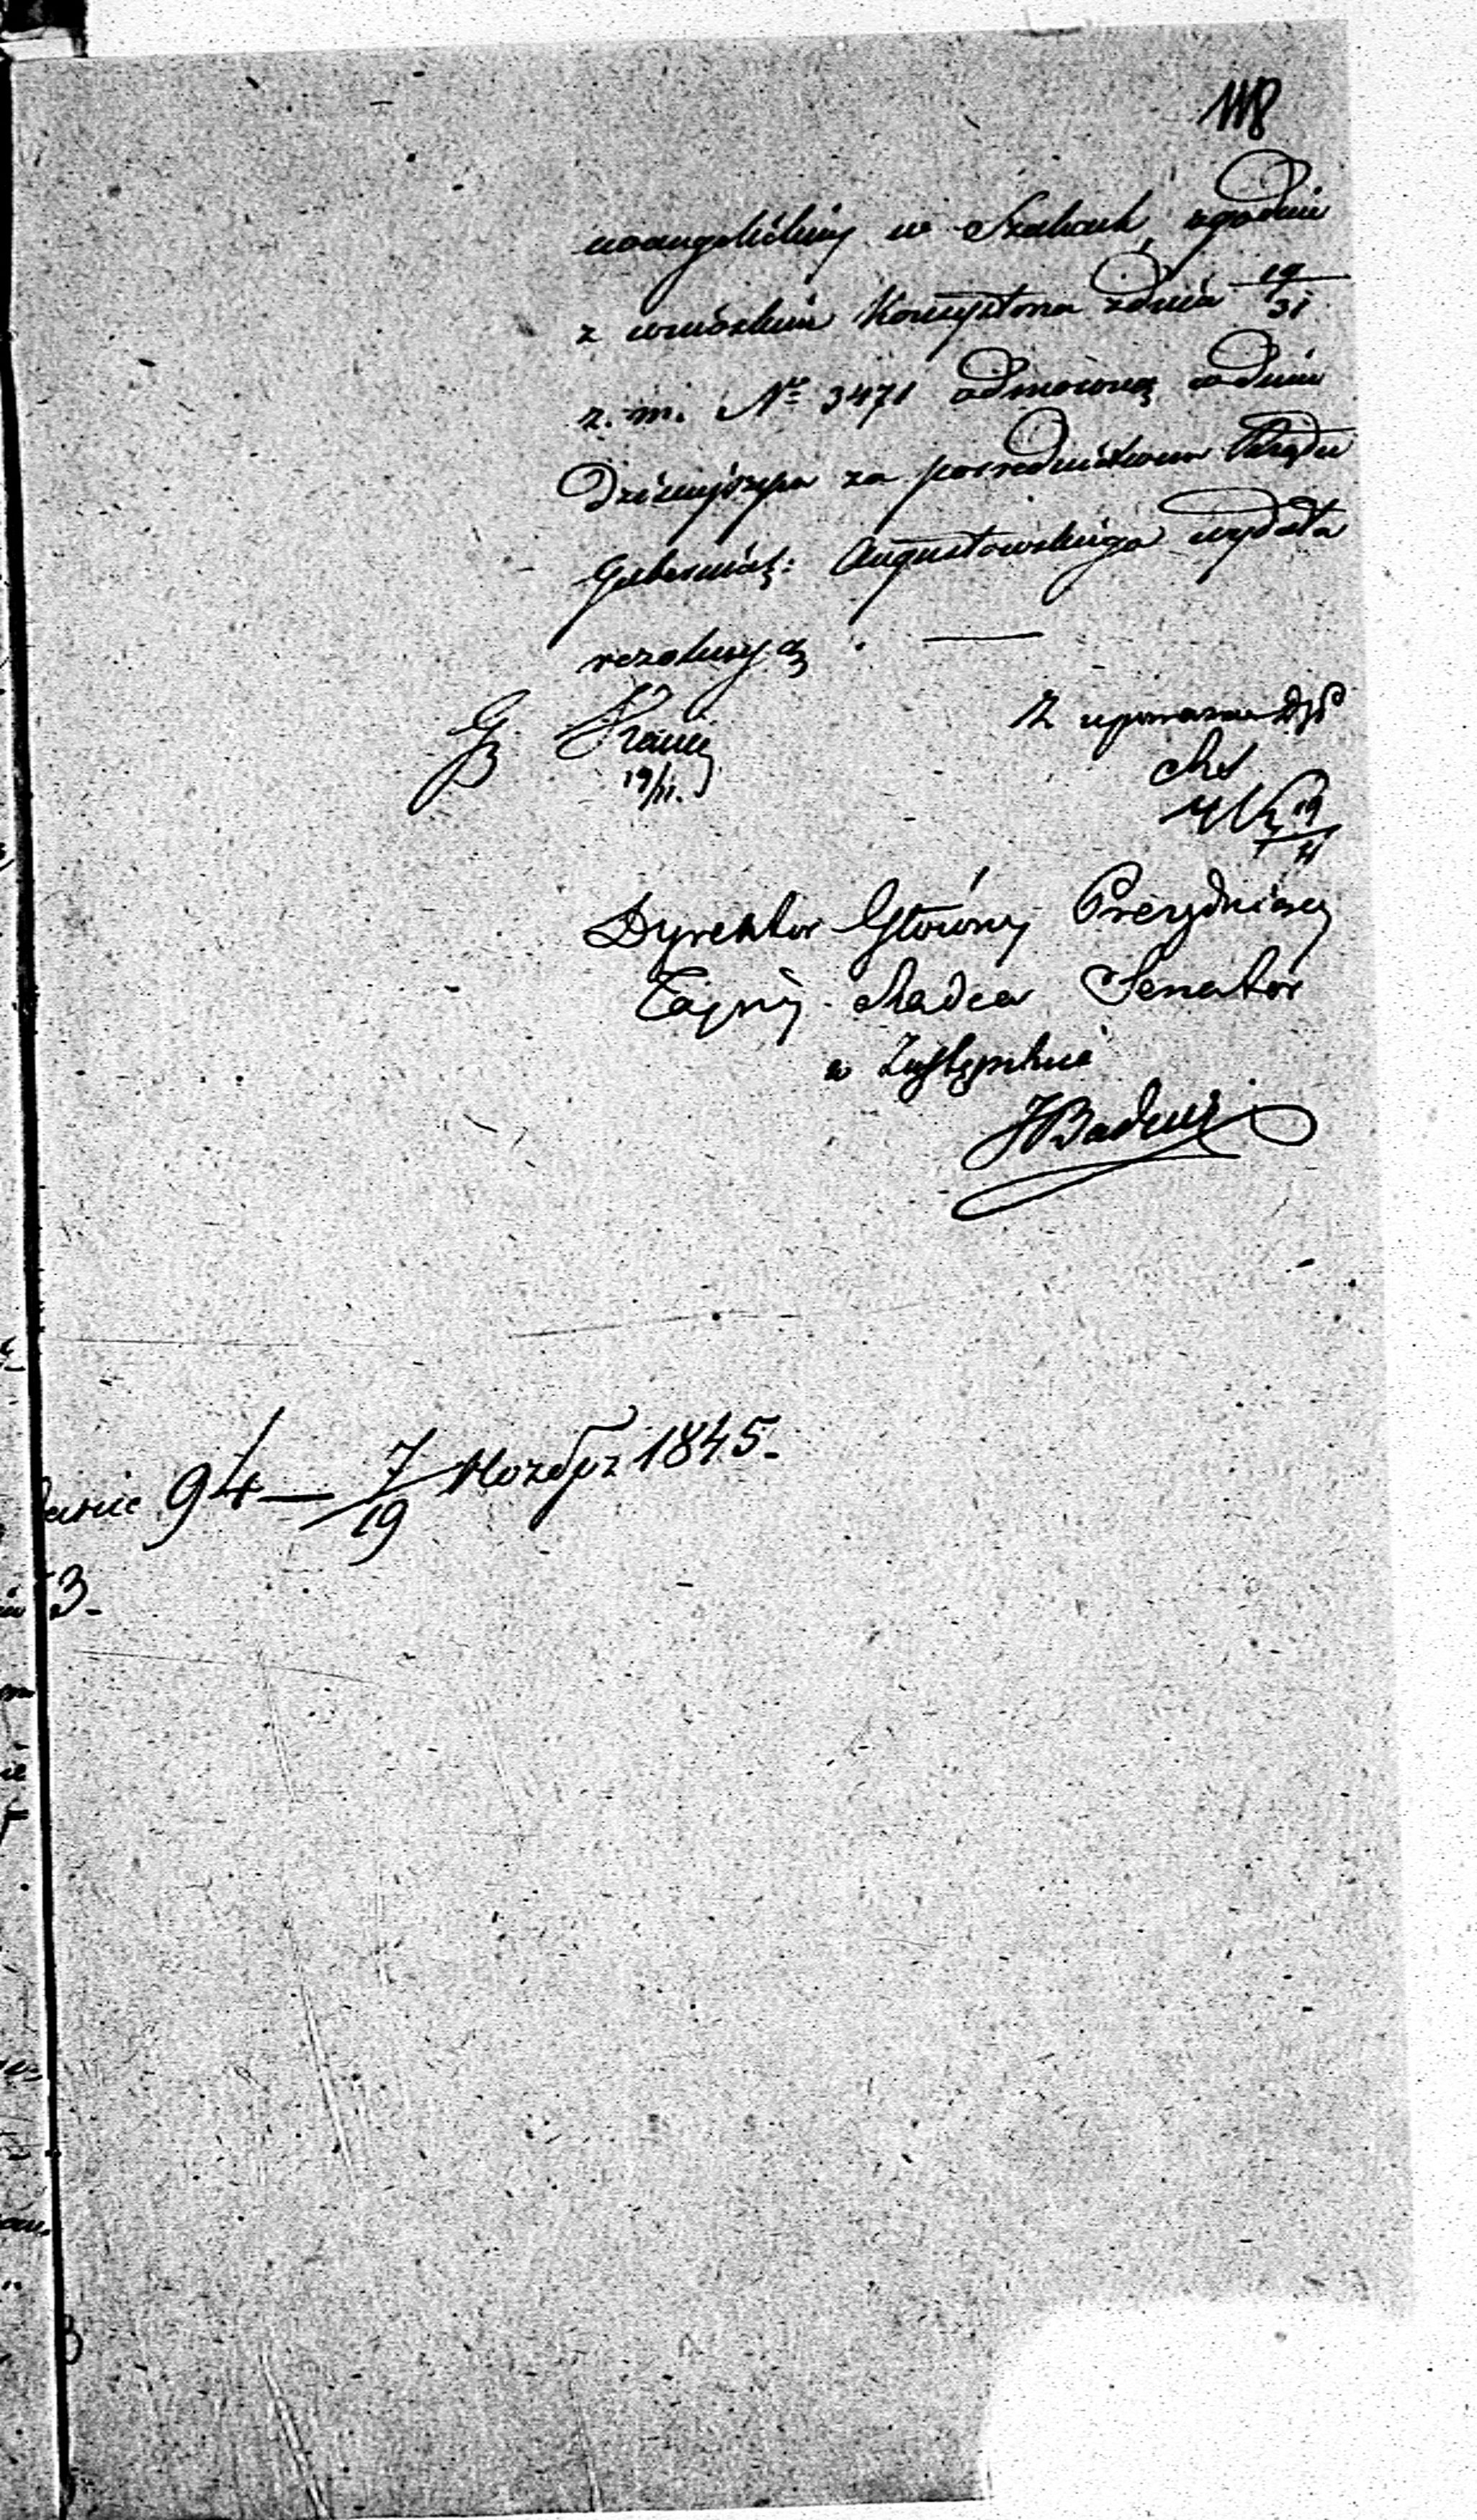 118
ewangelickiej w Szakach, zgodnie
z wnioskiem Konsystorza z dnia 19/31
z. m. Nº 3471 odmowną w dniu
dzisiejszym za pośrednictwem Rządu
Gubernial: Augustowskiego wydała
rezolucyą. —
19/11.
Z upoważn
19/11
Dyrektor Główny Prezydujący
Tajny Radca Senator
w Zastępstwie
JBadeni
94 — 7/19 Ноября 1845.
3.